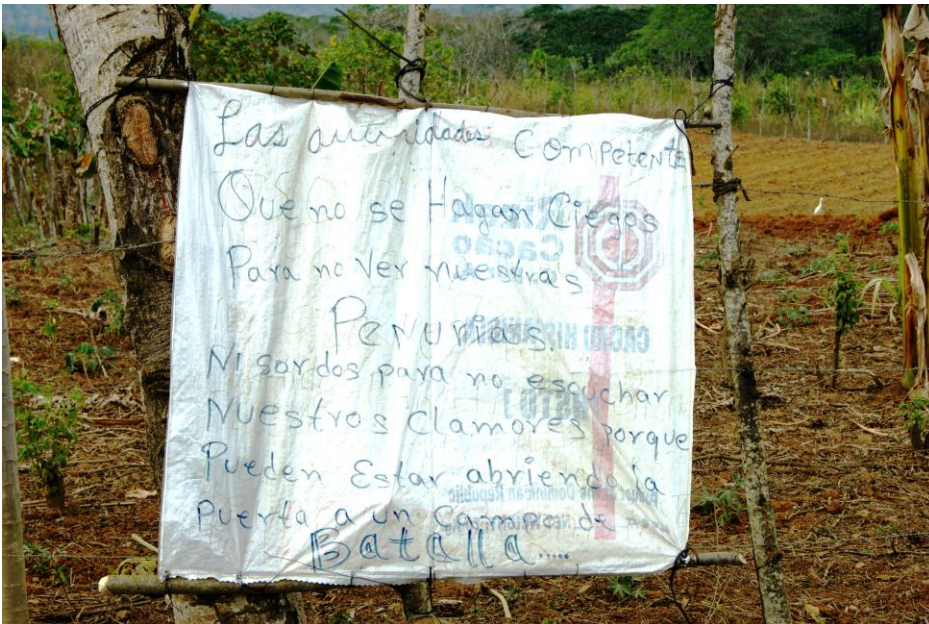 Las autoridades Competente
Que no se Hagan Ciegos
Para no Ver nuestras
Penurias
Ni sordos para no escuchar
Nuestros Clamores porque
Pueden Estar abriendo la
Puerta a un Campo de
Batalla....
Cacao
CACAO HISPANIOLA
Dominican Republic